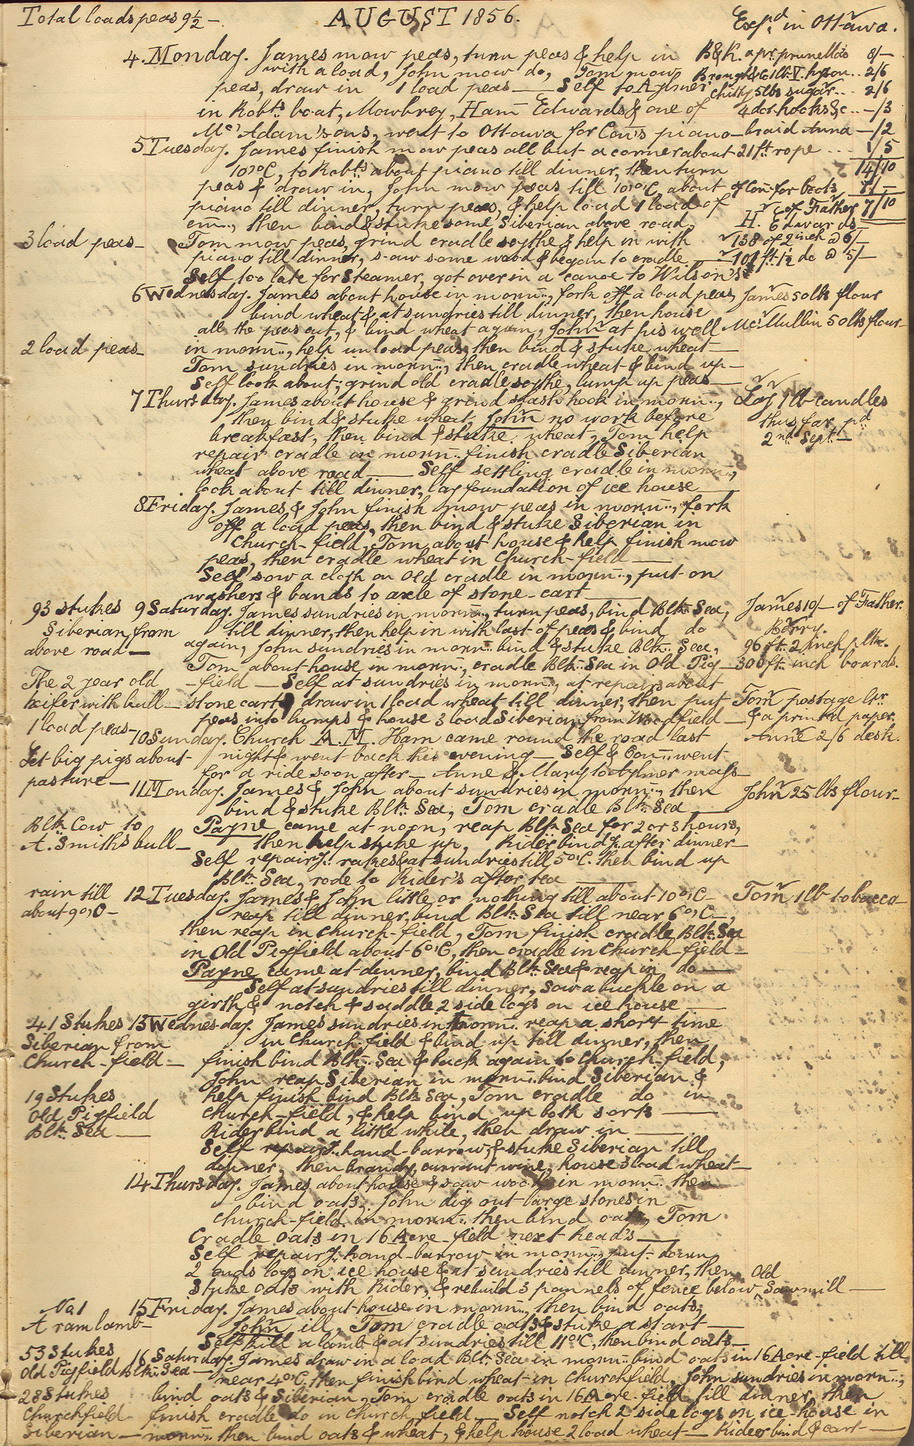 Total loads peas 9½ –
AUGUST 1856.
Exp.d in Ottawa.
4 Monday. James mow peas, turn peas & help in
with a load, John mow do, Tom mow
peas, draw in 1 load peas — Self to Aylmer
in Robt.s boat, Mowbrey, Ham Edwards & one of
McAdam's sons, went to Ottawa for Con's piano
B & K. a pr. prunellas 8/–
2/6
Chitty 5 lbs sugar... 2/6
4 doz. hooks &c – –/3
braid Anna – –/2
21 ft. rope ... 1/5
14/10
of Con for boots 7/–
7/10
5 Tuesday. James finish mow peas all but a corner about
10 o'C, to Robt.s about piano till dinner, then turn
peas & draw in, John mow peas till 10 o'C, about
piano till dinner, turn peas, & help load 1 load of
em, then bind & stuke some Siberian above road
3 load peas –
Tom mow peas, grind cradle scythe & help in with
piano till dinner, saw some wood & began to cradle
Self too late for Steamer, got over in a canoe to Wilson's
H. of Father
158 of 2 inch @ 6/–
101 ft. 1½ do @ 5/–
6 Wednesday. James about house in morn., fork off a load peas,
bind wheat & at sundries till dinner, then house
all the peas cut, & bind wheat again, John at his well
James 50 lb flour
McMullin 50 lbs flour
2 load peas –
in morn., help unload peas, then bind & stuke wheat
Tom sundries in morn., then cradle wheat & bind up –
Self look about, grind old cradle scythe, lump up peas –
7 Thursday. James about house & grind & fash hook in morn.,
then bind & stuke wheat, John no work before
breakfast, then bind & stuke wheat, Tom help
repair cradle in morn. finish cradle Siberian
wheat above road — Self settling cradle in morn.,
look about till dinner, lay foundation of ice house
1 lb candles
thus far pd
2nd Sept. –
8 Friday. James & John finish mow peas in morn., fork
off a load peas, then bind & stuke Siberian in
Church-field, Tom about house & help finish mow
peas, then cradle wheat in Church-field —
Self sow a cloth on old cradle in morn., put on
washers & bands to axle of stone-cart
93 stukes
Siberian from
above road —
9 Saturday. James sundries in morn., turn peas, bind Blk. Sea,
till dinner, then help in with last of peas & bind do
again, John sundries in morn. bind & stuke Blk. Sea,
Tom about house in morn., cradle Blk. Sea in Old Pig-
field — Self at sundries in morn., at repairs about
stone cart & draw in 1 load wheat till dinner, then put
peas into lumps & house 3 load Siberian from Woodfield –
James 10/– of Father.
Berry
96 ft. 2 inch plk.
300 ft. inch boards.
The 2 year old
heifer with bull –
1 load peas –
Tom postage lr.
& a printed paper.
Anne 2/6 desk.
10 Sunday. Church A.M. Ham came round the road last
night & went back this evening — Self & Con went
for a ride soon after — Anne & Mary to Aylmer mass
Let big pigs about
pasture –
11 Monday. James & John about sundries in morn., then
bind & stuke Blk. Sea, Tom cradle Blk. Sea
John 25 lbs flour –
Blk. Cow to
A. Smith's bull –
Payne came at noon, reap Blk. Sea for 2 or 3 hours,
then help stuke up, Rider bind after dinner –
Self repair rakes & at sundries till 5 o'C. then bind up
Blk. Sea, rode to Rider's after tea
rain till
about 9 o'C –
12 Tuesday. James & John little or nothing till about 10 o'C –
reap till dinner, bind Blk. Sea till near 6 o'C –,
then reap in church-field, Tom finish cradle Blk. Sea
in Old Pigfield about 6 o'C, then cradle in Church-field –
Payne came at dinner, bind Blk. Sea & reap in do —
Self at sundries till dinner, sow a buckle on a
girth & notch & saddle 2 side logs on ice house
Tom 1 lb tobacco
41 Stukes
Siberian from
Church-field –
13 Wednesday. James sundries in morn. reap a short time
in Church field & bind up till dinner, then
finish bind Blk. Sea & back again to Church-field,
John reap Siberian in morn. bind Siberian &
help finish bind Blk. Sea, Tom cradle do in
Church-field, & help bind up both sorts —
Rider bind a little while, then draw in —
Self repair hand-barrow, & stuke Siberian till
dinner, then brandy, currant wine, house 3 load wheat –
19 Stukes
Old Pigfield
Blk. Sea –
14 Thursday. James about house & saw wood in morn. then
bind oats, John dig out large stones in
Church-field in morn. then bind oats, Tom
Cradle oats in 16 Acre-field next head's
Self repair hand-barrow in morn., put down
2 ends logs on ice house & at sundries till dinner, then
stuke oats with Rider, & rebuild 3 pannels of fence below Old Sawmill –
No 1
A ram lamb –
15 Friday. James about house in morn., then bind oats,
John ill, Tom cradle oats & stuke a start —
Self kill a lamb & at sundries till 11 o'C, then bind oats –
53 Stukes
Old Pigfield Blk. Sea –
28 Stukes
Churchfield
Siberian –
16 Saturday. James draw in a load Blk. Sea in morn. bind oats in 16 Acre-field till
near 4 o'C, then finish bind wheat in Churchfield, John sundries in morn.,
bind oats & Siberian, Tom cradle oats in 16 Acre-field till dinner, then
finish cradle do in Church field — Self notch 2 side logs on ice-house in
morn. then bind oats & wheat, & help house 2 load wheat — Rider bind & cart –